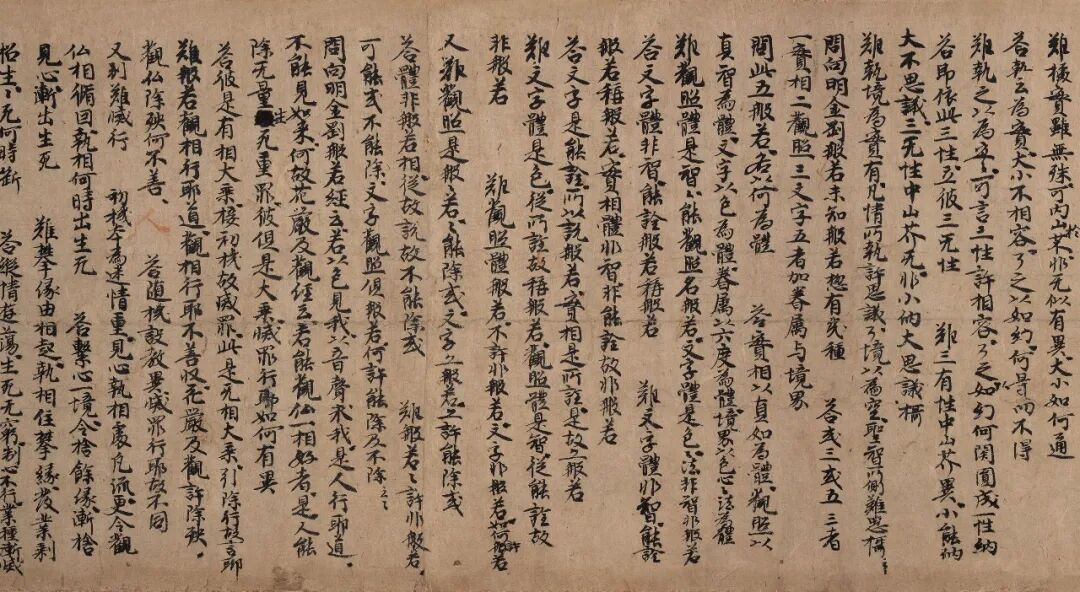 難據實雖無殊可内於山芥非无似有異大小如何通
荅執云為實大小不相容了之以如幻何导而不得
難執之以為五不可言三性許相容了之如幻何関圓成一性納
荅即依此三性立彼三无性　難三有性中山芥異小能納
大不思議三无性中山芥无非小納大思議稱
難執境為實有凡情所執許思議了境以為空聖智以何難思稱
問向明金剛般若未知般若惣有幾種　荅或三或五三者
一實相二觀照三文字五者加眷属与境界
問此五般若各以何為體　荅實相以真如為體觀照以
真智為體文字以色為體眷属以六度為體境界以色心等法為體
難觀照體是智能觀照名般若文字體是色色法非智非般若
荅文字體非智能詮般若稱般若　難文字體非智能詮
般若稱般若實相體非智非能詮故非般若
荅文字是能詮所以說般若實相是所詮是故亦般若
難文字體是色從所詮故稱般若觀照體是智從能詮故
非般若　難觀照體般若不許非般若文字非般若何許般若
又難觀照是般若々々能除或文字亦般若亦許能除或
荅體非般若相從故說故不能除或　難般若々許非般若
可能或不能除文字觀照俱般若何許能除及不除
問向明金剛般若經云若以色見我以音聲求我是人行耶道
不能見如来何故花嚴及觀經云若能觀仏一相好者是人能
除无量生死重罪彼但是大乘滅罪行耶如何有異
荅彼是有相大乘接初機故滅罪此是无相大乘引除行故言耶
難般若觀相行耶道觀相行耶不善收花嚴及觀許除殃
觀仏除殃何不善　荅随機設教異滅罪行耶故不同
又到難滅行　初機本為迷情重見心執相處凡流更令觀
仏相循回執相何時出生死　荅繫心境令捨餘縁漸捨
見心漸出生死　難攀縁由相起執相住攀縁發業剰
招生々死何時断　荅縱情遊蕩生死无窮制心不行業種漸滅